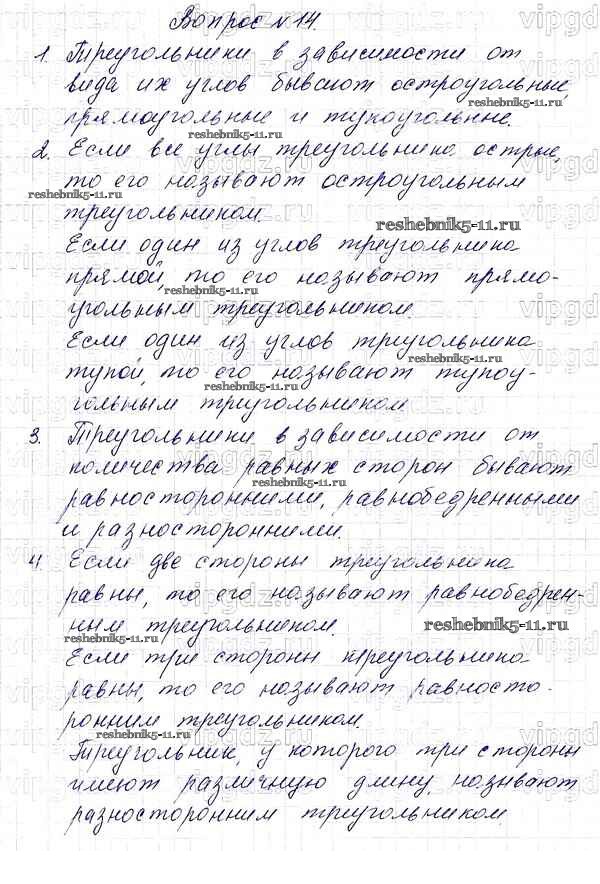 Вопрос №14.
1. Треугольники в зависимости от
вида их углов бывают остроугольные,
прямоугольные и тупоугольные.
2. Если все углы треугольника острые,
то его называют остроугольным
треугольником.
Если один из углов треугольника
прямой, то его называют прямо-
угольным треугольником.
Если один из углов треугольника
тупой, то его называют тупоу-
гольным треугольником.
3. Треугольники в зависимости от
количества равных сторон бывают
равносторонними, равнобедренными
и разносторонними.
4. Если две стороны треугольника
равны, то его называют равнобедрен-
ным треугольником.
Если три стороны треугольника
равны, то его называют равносто-
ронним треугольником.
Треугольник, у которого три стороны
имеют различную длину, называют
разносторонним треугольником.
reshebnik5-11.ru
reshebnik5-11.ru
reshebnik5-11.ru
reshebnik5-11.ru
reshebnik5-11.ru
reshebnik5-11.ru
reshebnik5-11.ru
reshebnik5-11.ru
reshebnik5-11.ru
reshebnik5-11.ru
vipgdz.ru